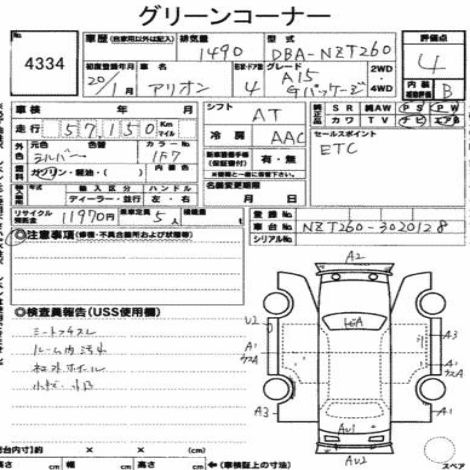 グリーンコーナー
No.
4334
車歴(自家用以外は記入) 排気量 1490 型式 DBA-NZT260
初度登録年月 20/1月 車名 アリオン 形状・ドア数 4 グレード A15 Gパッケージ 2WD 4WD
評価点 4
内装 B
車検 年 月
走行 57150 Km マイル
外色 元色 シルバー 色替 カラーNo. 1F7
燃料 ガソリン・軽油・( ) 内装色
輸入車 年式 輸入区分 ハンドル
ディーラー・並行 左・右
リサイクル預託金 11970円 乗車定員 5人 積載量
シフト AT
冷房 AAC
有・無
名義変更期限
月 日
純正品 SR 純AW PS PW
カワ TV ナビ エアB
セールスポイント
ETC
登録No.
車台No. NZT260-3020128
シリアルNo.
◎注意事項(修復・不具合箇所および状態等)
◎検査員報告(USS使用欄)
シートスレ
ルーム内汚レ
A2
U2
A1
A3
A1
A3
A1
AU1
AU2
台内寸] 約 × × (cm)
高さ cm 幅 cm 高さ cm ←(車検証上の寸法)
スペア